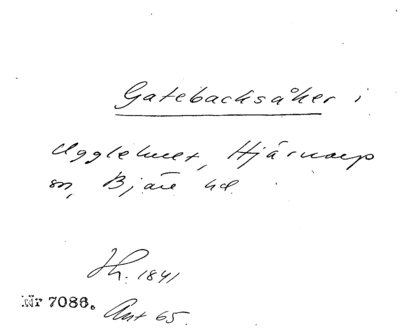 Gatebacksåker i
Ugglehult, Hjärnarp
sn, Bjäre hd.
Jh. 1841
Nr 7086. Ant 65.